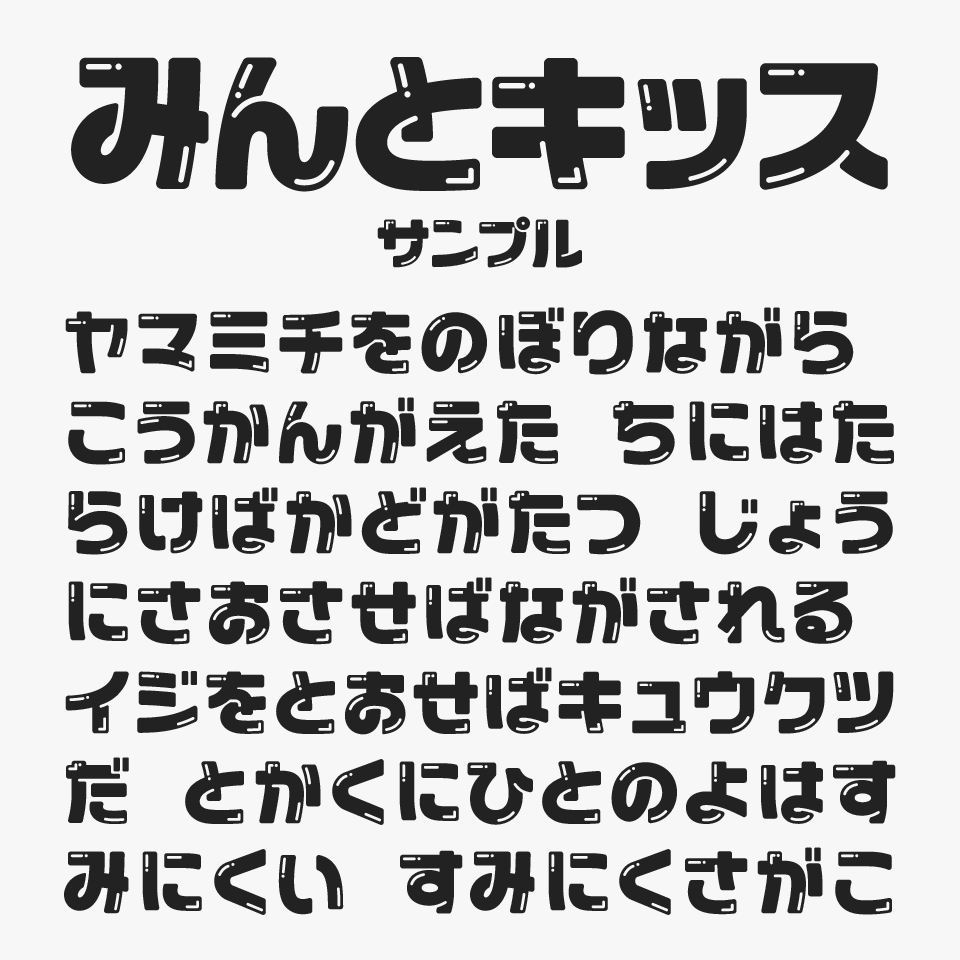 みんとキッス
サンプル
ヤマミチをのぼりながら
こうかんがえた　ちにはた
らけばかどがたつ　じょう
にさおさせばながされる
イジをとおせばキュウクツ
だ　とかくにひとのよはす
みにくい　すみにくさがこ